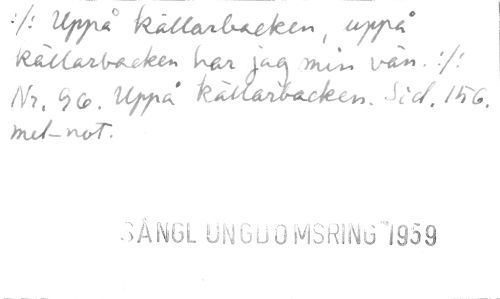 :/: Uppå källarbacken, uppå
källarbacken har jag min vän. :/:
Nr. 96. Uppå källarbacken. Sid. 156.
mel-not.
SÅNGL UNGDOMSRING 1959